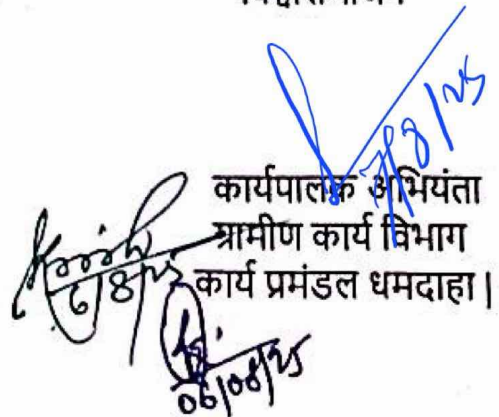 7/8/25
कार्यपालक अभियंता
ग्रामीण कार्य विभाग
6/8/25 कार्य प्रमंडल धमदाहा।
06/08/25